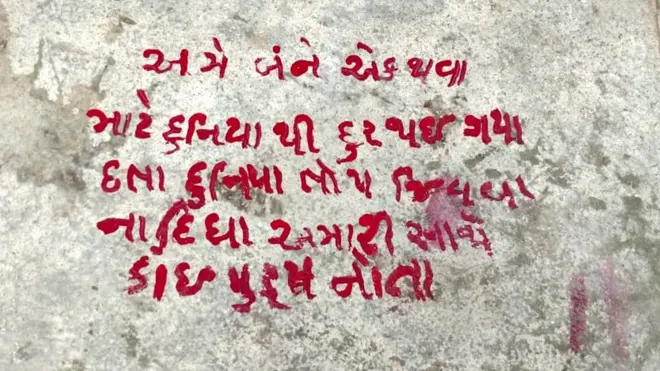 અમે બંને એક થવા
માટે દુનિયા થી દુર થઇ ગયા
હતા દુનિયા તોય જિવવા
ના દિધા અમારી આબ
કોઇ પુરૂષ નોતા